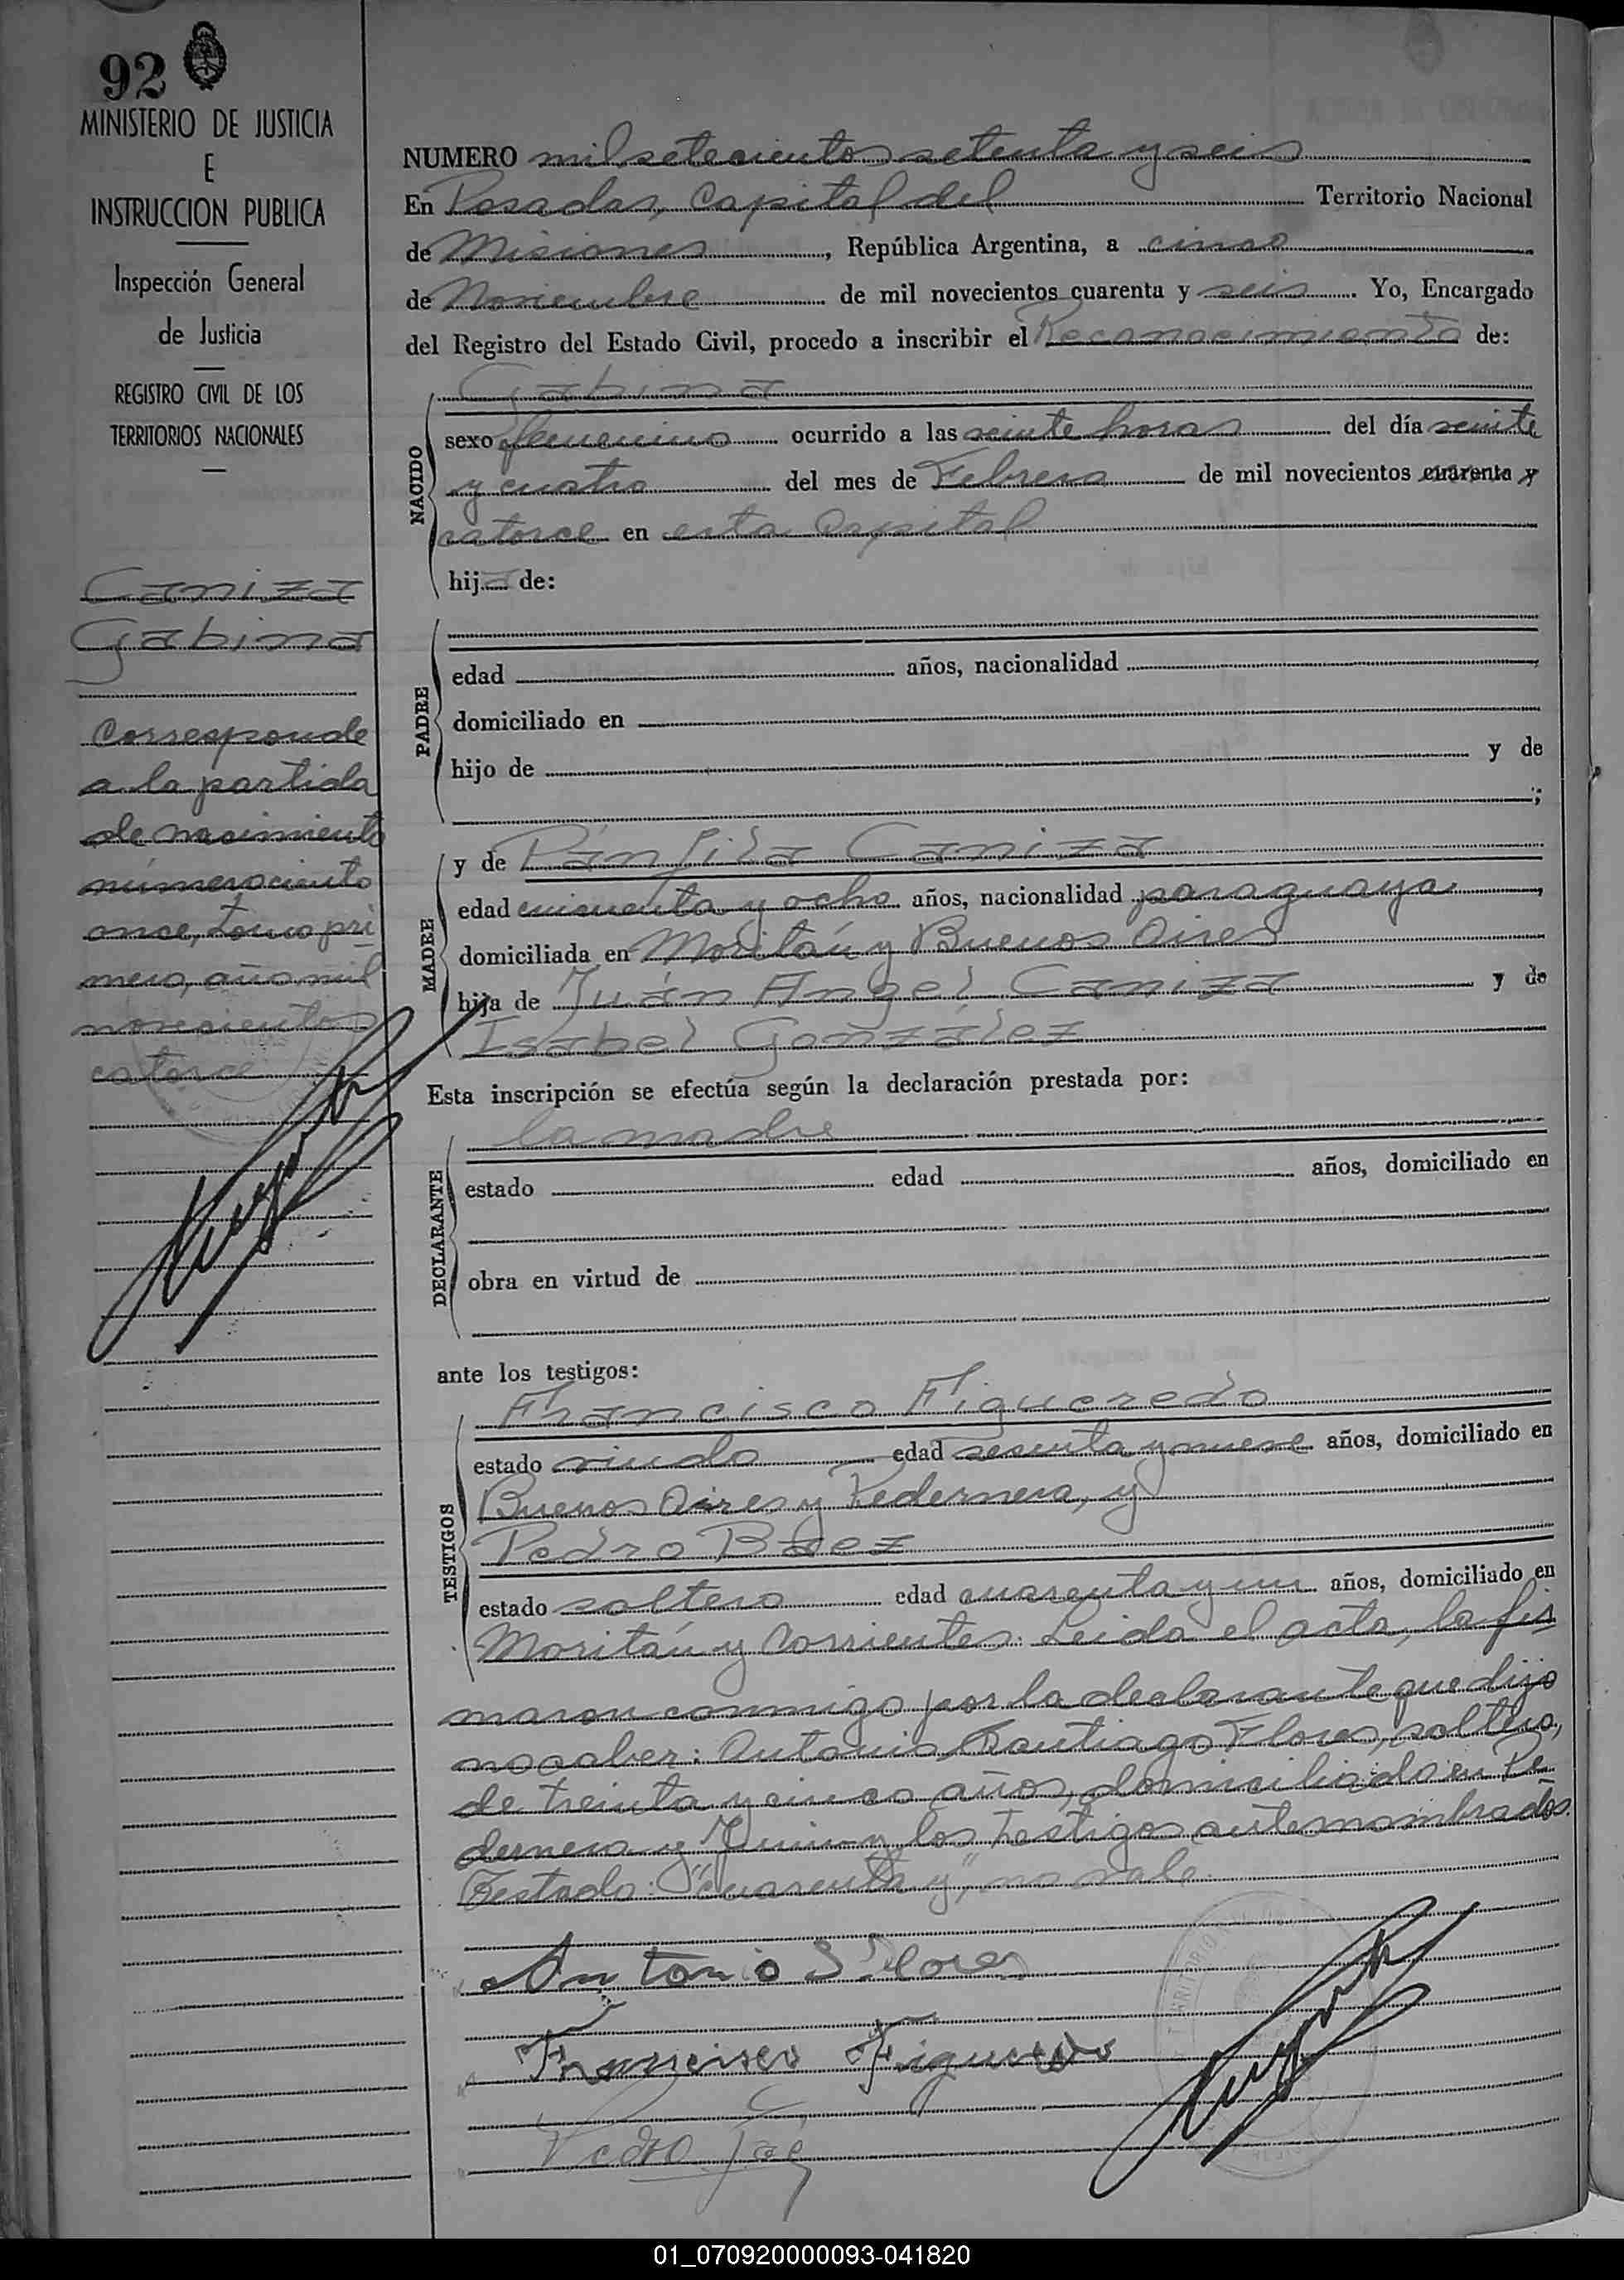 92
MINISTERIO DE JUSTICIA
E
INSTRUCCION PUBLICA
Inspección General
de Justicia
REGISTRO CIVIL DE LOS
TERRITORIOS NACIONALES
Caniza
Gabina
Corresponde
a la partida
de nacimiento
número ciento
once, tomo pri-
mero, año mil
novecientos
catorce
NUMERO mil setecientos setenta y seis
En Posadas, Capital del Territorio Nacional
de Misiones, República Argentina, a cinco
de Noviembre de mil novecientos cuarenta y seis. Yo, Encargado
del Registro del Estado Civil, procedo a inscribir el Reconocimiento de:
NACIDO
Gabina
sexo femenino ocurrido a las veinte horas del día veinte
y cuatro del mes de Febrero de mil novecientos cuarenta y
catorce en esta Capital
hija de:
PADRE
edad años, nacionalidad
domiciliado en
hijo de y de
;
MADRE
y de Pánfila Caniza
edad cincuenta y ocho años, nacionalidad paraguaya,
domiciliada en Moritán y Buenos Aires
hija de Juán Angel Caniza y de
Isabel González
Esta inscripción se efectúa según la declaración prestada por:
DECLARANTE
la madre
estado edad años, domiciliado en
obra en virtud de
ante los testigos:
TESTIGOS
Francisco Figueredo
estado viudo edad sesenta y nueve años, domiciliado en
Buenos Aires y Pedernera, y
Pedro Báez
estado soltero edad cuarenta y un años, domiciliado en
Moritán y Corrientes. Leida el acta, la fir
maron conmigo por la declarante que dijo
no saber: Antonio Santiago Flores, soltero,
de treinta y cinco años, domiciliado en Pe-
dernera y Junin y los testigos antenombrados.
Testado: "cuarenta y", no vale.
Antonio S Flores
Francisco Figueredo
Pedro
01_070920000093-041820